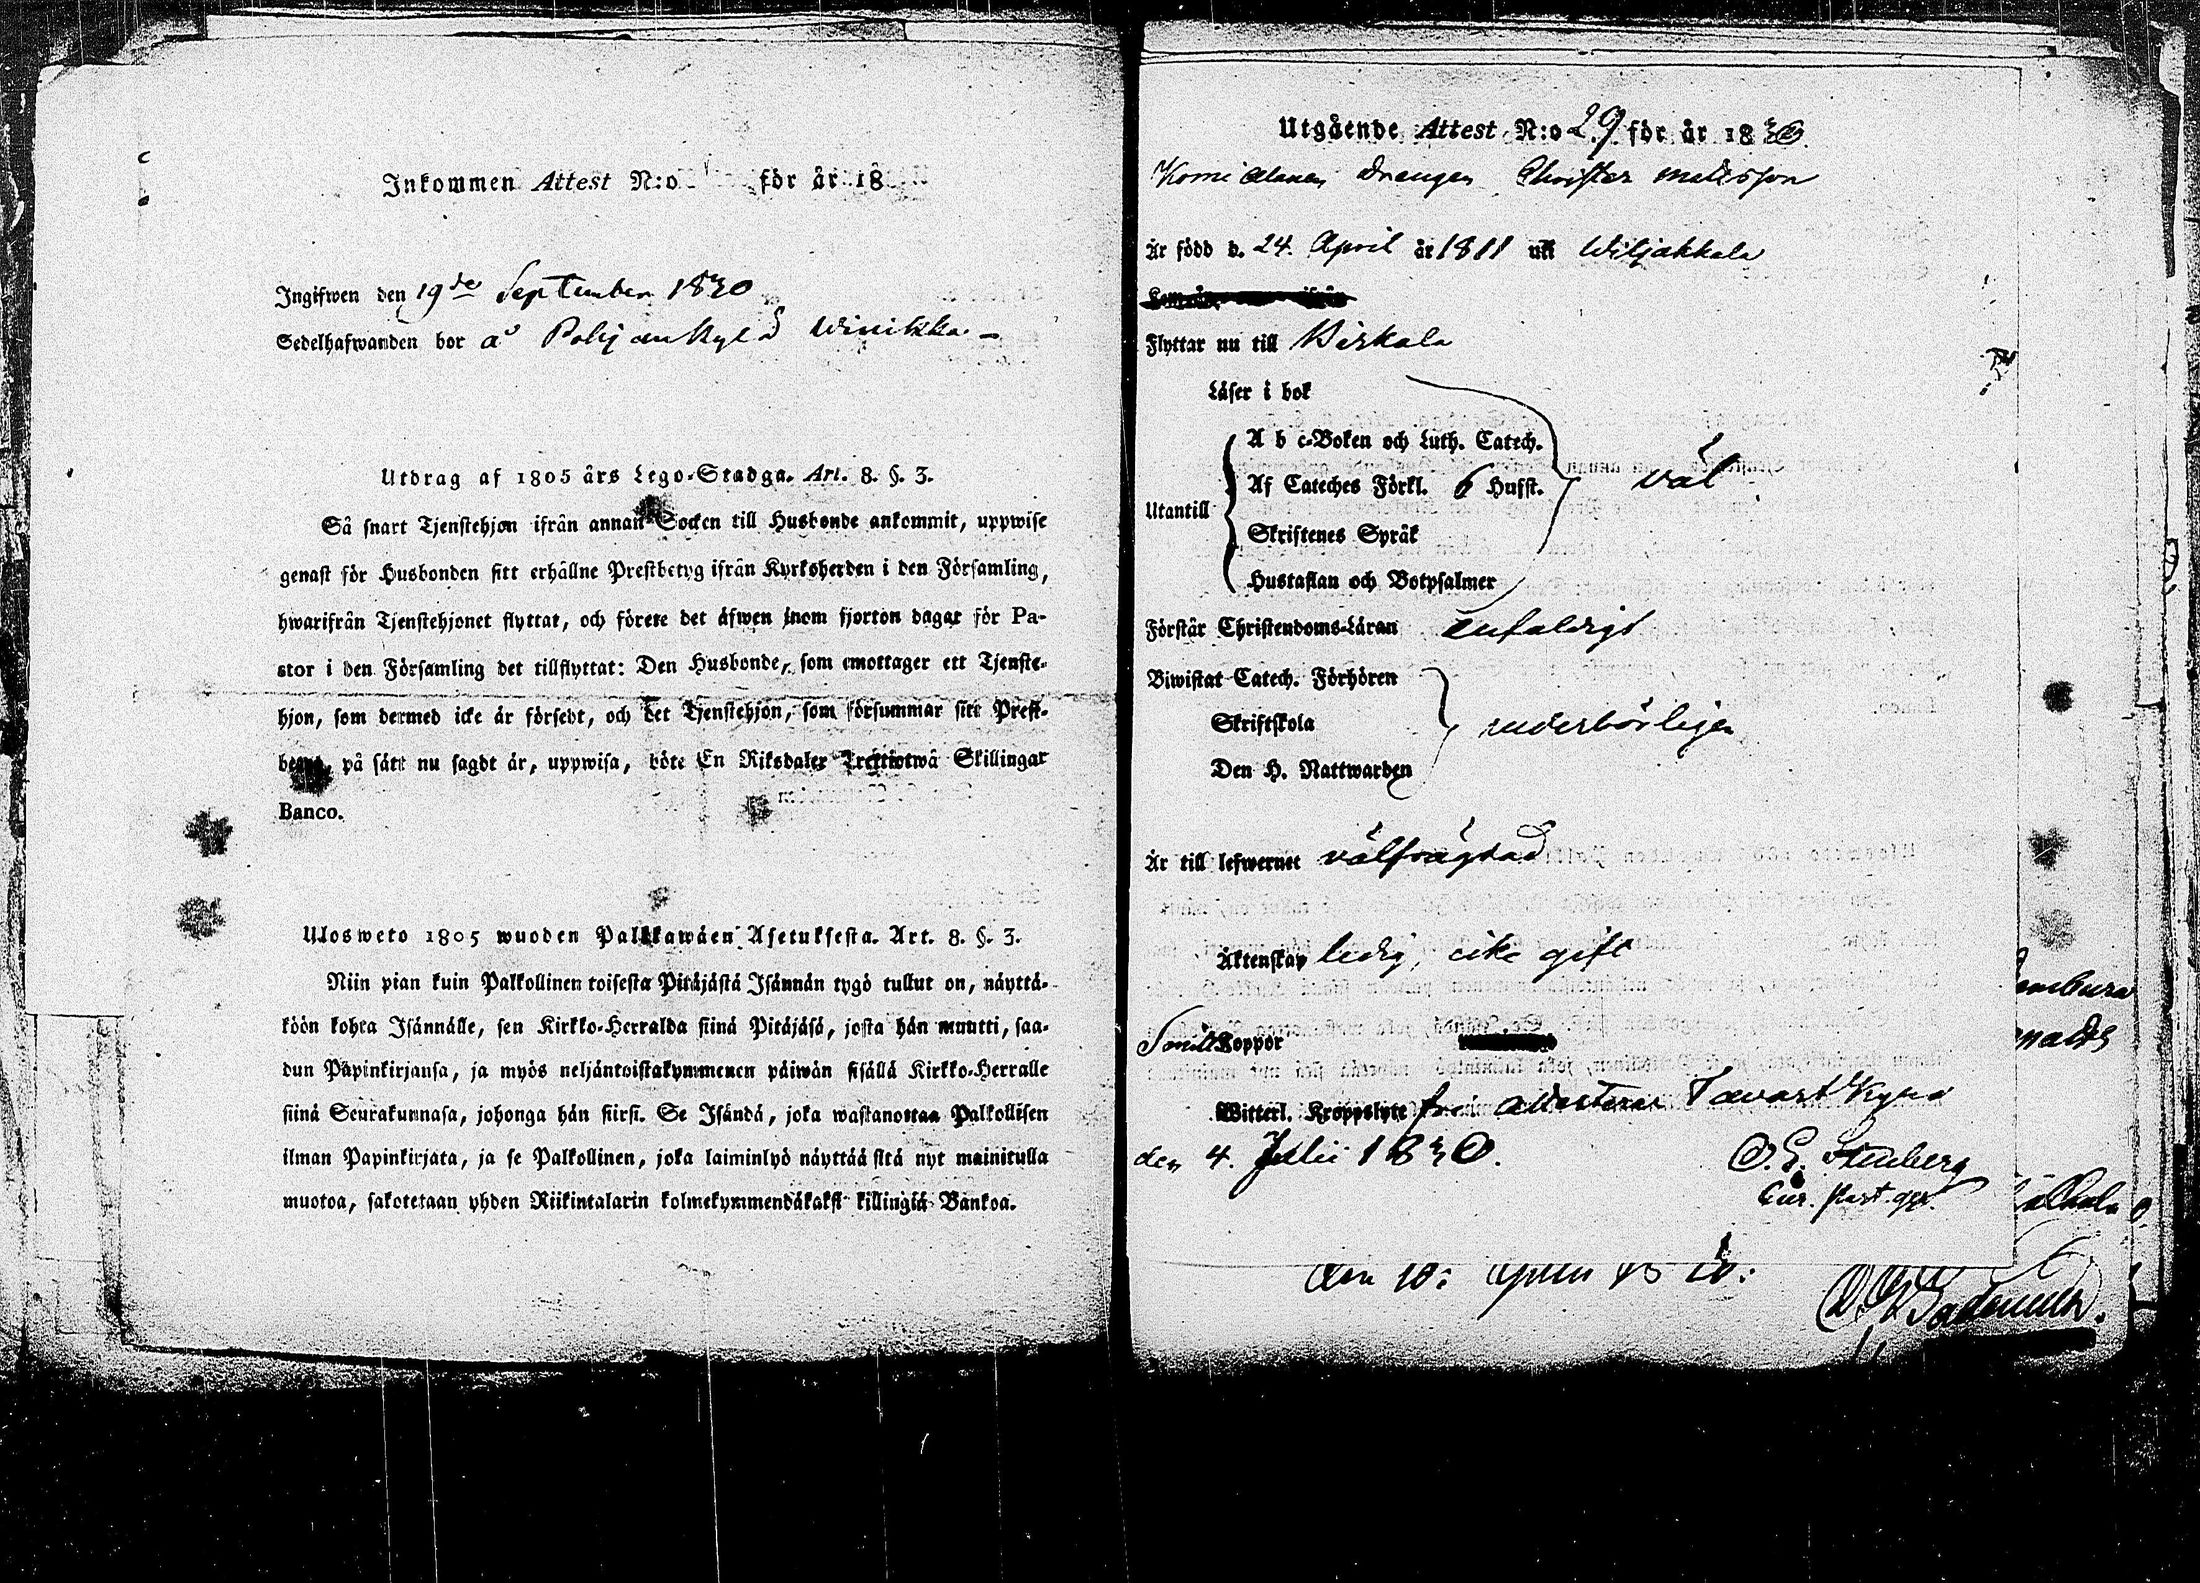 Inkommen Attest N:o för år 18
Ingifwen den 19de September 1830
Sedelhafwanden bor å Pohjankylä Winikka
Utdrag af 1805 års Lego-Stadga. Art. 8. §. 3.
Så snart Tjenstehjon ifrån annan Socken till Husbonde ankommit, uppwise
genast för Husbonden sitt erhållne Prestbetyg ifrån Kyrkoherden i den Församling,
hwarifrån Tjenstehjonet flyttat, och förete det äfwen inom fjorton dagar för Pa-
stor i den Församling det tillflyttat: Den Husbonde, som emottager ett Tjenste-
hjon, som dermed icke är försedt, och det Tjenstehjon, som försummar sitt Prest-
betyg, på sätt nu sagdt är, uppwisa, böte En Riksdaler Trettiotwå Skillingar
Banco.
Ulosweto 1805 wuoden Palkkawäen Asetuksesta. Art. 8. §. 3.
Niin pian kuin Palkollinen toisesta Pitäjästä Isännän tygö tullut on, näyttä-
köön kohta Isännälle, sen Kirkko-Herralda siinä Pitäjäsä, josta hän muutti, saa-
dun Papinkirjansa, ja myös neljäntoistakymmenen päiwän sisällä Kirkko-Herralle
siinä Seurakunnasa, johonga hän siirsi. Se Isändä, joka wastanottaa Palkollisen
ilman Papinkirjata, ja se Palkollinen, joka laiminlyö näyttää sitä nyt mainitulla
muotoa, sakotetaan yhden Riikintalarin kolmekymmendäkaksi killingiä Bankoa.
Utgående Attest N:o 29 för år 1830.
Drengen Christer Matsson
Är född d. 24. April år 1811 uti Wiljakkala
Flyttar nu till Birkala
Läser i bok
A b c-Boken och Luth. Catech.
Af Cateches Förkl. 6 Hufst. väl
Utantill
Skriftenes Språk
Hustaflan och Botpsalmer
Förstår Christendoms-Läran enfaldigt
Biwistat Catech. Förhören
Skriftskola vederbörligen
Den H. Nattwarden
Är till lefwernet välfrägdad
Äktenskap ledig, cike gift
Koppor
Witterl. Kroppslyte fri attesterar Tavastkyrö
den 4. Julii 1830.
O. G. Stenberg
Cur. Past. gr.